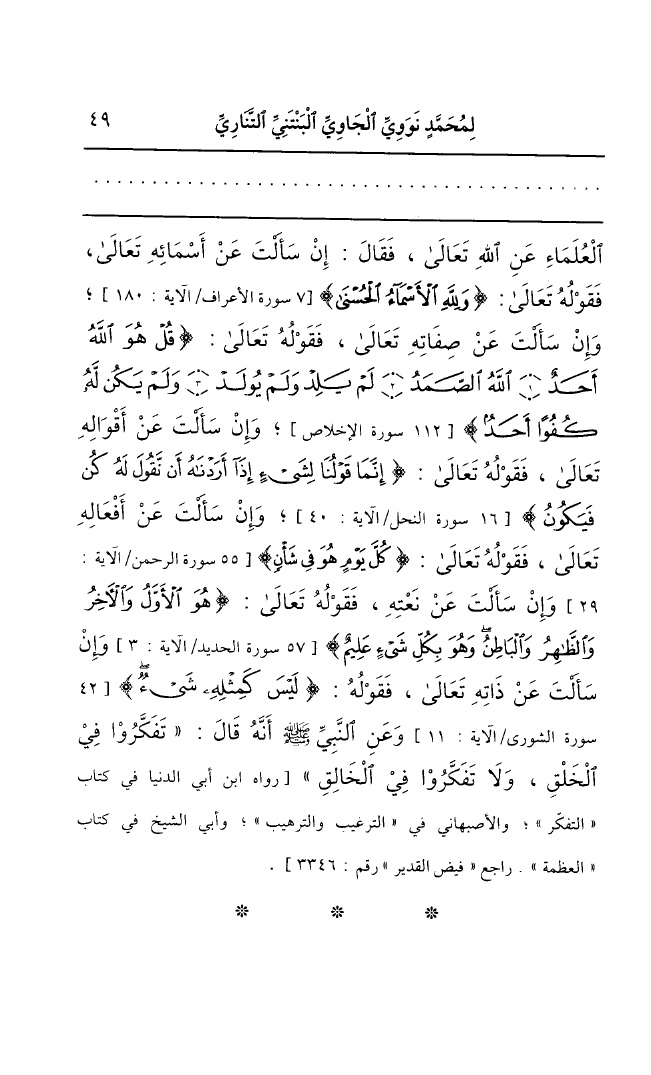 لِمُحَمَّدٍ نَوَوِيِّ ٱلْجَاوِيِّ ٱلْبَنْتَنِيِّ ٱلتَّنَارِيِّ ٤٩
ٱلْعُلَمَاءِ عَنِ ٱللهِ تَعَالَىٰ ، فَقَالَ : إِنْ سَأَلْتَ عَنْ أَسْمَائِهِ تَعَالَىٰ ،
فَقَوْلُهُ تَعَالَىٰ : ﴿ وَلِلَّهِ ٱلْأَسْمَآءُ ٱلْحُسْنَىٰ ﴾ [٧ سورة الأعراف/الآية : ١٨٠ ] ؛
وَإِنْ سَأَلْتَ عَنْ صِفَاتِهِ تَعَالَىٰ ، فَقَوْلُهُ تَعَالَىٰ : ﴿ قُلْ هُوَ ٱللَّهُ
أَحَدٌ ۝١ ٱللَّهُ ٱلصَّمَدُ ۝٢ لَمْ يَلِدْ وَلَمْ يُولَدْ ۝٣ وَلَمْ يَكُن لَّهُۥ
كُفُوًا أَحَدٌۢ ﴾ [ ١١٢ سورة الإخلاص ] ؛ وَإِنْ سَأَلْتَ عَنْ أَقْوَالِهِ
تَعَالَىٰ ، فَقَوْلُهُ تَعَالَىٰ : ﴿ إِنَّمَا قَوْلُنَا لِشَىْءٍ إِذَآ أَرَدْنَٰهُ أَن نَّقُولَ لَهُۥ كُن
فَيَكُونُ ﴾ [ ١٦ سورة النحل/الآية : ٤٠ ] ؛ وَإِنْ سَأَلْتَ عَنْ أَفْعَالِهِ
تَعَالَىٰ ، فَقَوْلُهُ تَعَالَىٰ : ﴿ كُلَّ يَوْمٍ هُوَ فِى شَأْنٍ ﴾ [ ٥٥ سورة الرحمن/الآية :
٢٩ ] وَإِنْ سَأَلْتَ عَنْ نَعْتِهِ ، فَقَوْلُهُ تَعَالَىٰ : ﴿ هُوَ ٱلْأَوَّلُ وَٱلْآخِرُ
وَٱلظَّٰهِرُ وَٱلْبَاطِنُ ۖ وَهُوَ بِكُلِّ شَىْءٍ عَلِيمٌ ﴾ [ ٥٧ سورة الحديد/الآية : ٣ ] وَإِنْ
سَأَلْتَ عَنْ ذَاتِهِ تَعَالَىٰ ، فَقَوْلُهُ : ﴿ لَيْسَ كَمِثْلِهِۦ شَىْءٌ ۖ ﴾ [ ٤٢
سورة الشورى/الآية : ١١ ] وَعَنِ ٱلنَّبِيِّ ﷺ أَنَّهُ قَالَ : « تَفَكَّرُوْا فِيْ
ٱلْخَلْقِ ، وَلَا تَفَكَّرُوْا فِيْ ٱلْخَالِقِ » [ رواه ابن أبي الدنيا في كتاب
« التفكّر » ؛ والأصبهاني في « الترغيب والترهيب » ؛ وأبي الشيخ في كتاب
« العظمة » . راجع « فيض القدير » رقم : ٣٣٤٦ ] .